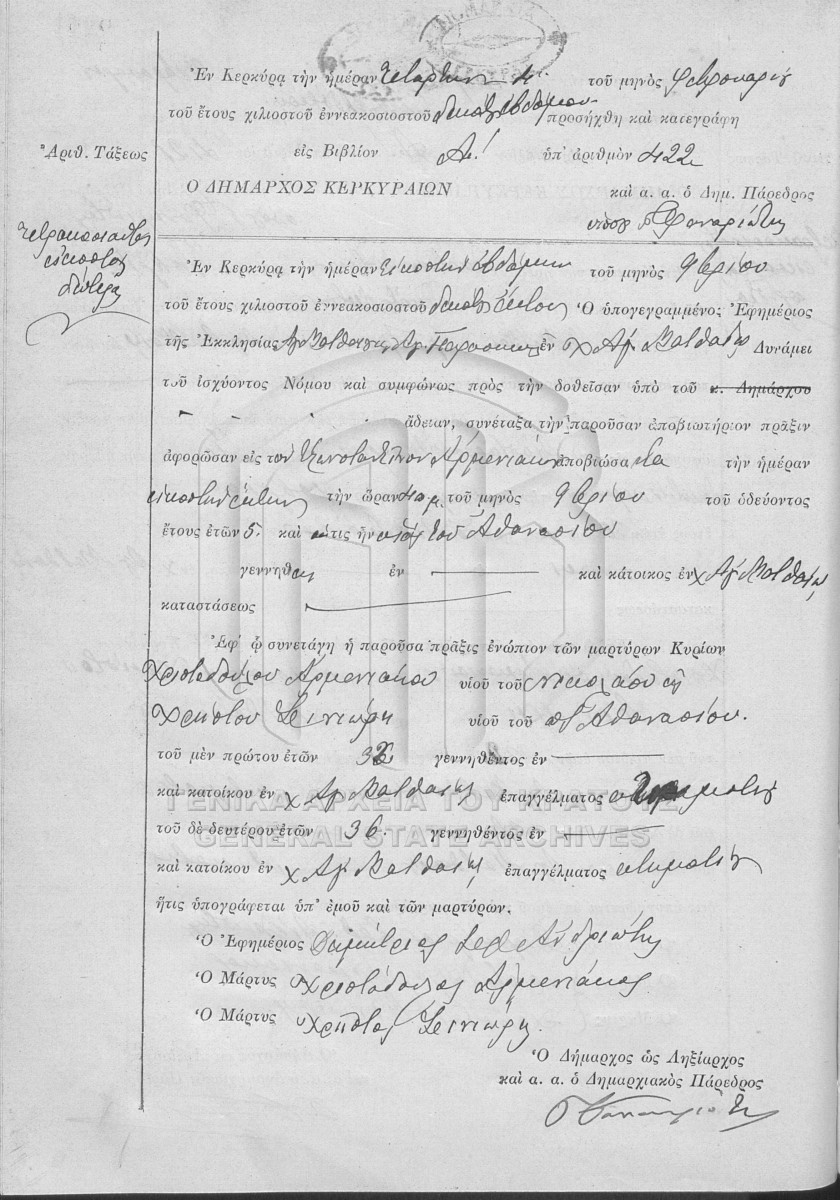 Ἐν Κερκύρᾳ τὴν ἡμέραν Τετάρτην 4 τοῦ μηνὸς Φεβρουαρίου
τοῦ ἔτους χιλιοστοῦ ἐννεακοσιοστοῦ δεκάτου ἑβδόμου προσήχθη καὶ κατεγράφη
Ἀριθ. Τάξεως
εἰς Βιβλίον Α! ὑπ' ἀριθμὸν 422
Ὁ ΔΗΜΑΡΧΟΣ ΚΕΡΚΥΡΑΙΩΝ καὶ α. α. ὁ Δημ. Πάρεδρος
Φαναριώτης
τετρακοσιοστὸς
εἰκοστὸς
δεύτερος
Ἐν Κερκύρᾳ τὴν ἡμέραν εἰκοστὴν ἑβδόμην τοῦ μηνὸς 9βρίου
τοῦ ἔτους χιλιοστοῦ ἐννεακοσιοστοῦ δεκάτου ἕκτου Ὁ ὑπογεγραμμένος Ἐφημέριος
τῆς Ἐκκλησίας Ἁγ. Παρασκευῆς ἐν χ Ἁγ. Ματθαίῳ Δυνάμει
τοῦ ἰσχύοντος Νόμου καὶ συμφώνως πρὸς τὴν δοθεῖσαν ὑπὸ τοῦ κ. Δημάρχου
ἄδειαν, συνέταξα τὴν παροῦσαν ἀποβιωτήριον πρᾶξιν
ἀφορῶσαν εἰς τὸν Κωνσταντῖνον Ἀρμενιάκον ἀποβιώσαντα τὴν ἡμέραν
εἰκοστὴν ἕκτην τὴν ὥραν 4 μ.μ. τοῦ μηνὸς 9βρίου τοῦ ὁδεύοντος
ἔτους ἐτῶν 5 καὶ ὅστις ἦν υἱὸς τοῦ Ἀθανασίου
γεννηθεὶς ἐν — καὶ κάτοικος ἐν χ Ἁγ. Ματθαίῳ
καταστάσεως —
Ἐφ' ᾧ συνετάγη ἡ παροῦσα πρᾶξις ἐνώπιον τῶν μαρτύρων Κυρίων
Χριστοδούλου Ἀρμενιάκου υἱοῦ τοῦ Νικολάου καὶ
Χρήστου υἱοῦ τοῦ Ἀθανασίου.
τοῦ μὲν πρώτου ἐτῶν γεννηθέντος ἐν —
καὶ κατοίκου ἐν χ Ἁγ. Ματθαίῳ ἐπαγγέλματος κτηματίου
ΓΕΝΙΚΑ ΑΡΧΕΙΑ ΤΟΥ ΚΡΑΤΟΥΣ
GENERAL STATE ARCHIVES
τοῦ δὲ δευτέρου ἐτῶν 36. γεννηθέντος ἐν —
καὶ κατοίκου ἐν χ Ἁγ. Ματθαίῳ ἐπαγγέλματος κτηματίου
ἥτις ὑπογράφεται ὑπ' ἐμοῦ καὶ τῶν μαρτύρων.
Ὁ Ἐφημέριος Δημήτριος Ἱερ. Ἀνδριώτης
Ὁ Μάρτυς Χριστόδουλος Ἀρμενιάκος
Ὁ Μάρτυς Χρῆστος
Ὁ Δήμαρχος ὡς Ληξίαρχος
καὶ α. α. ὁ Δημαρχιακὸς Πάρεδρος
Φαναριώτης